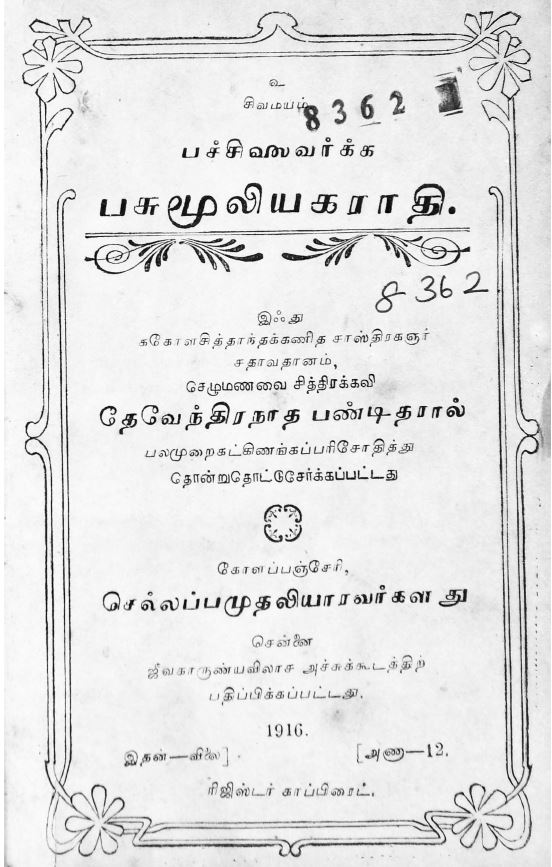 உ
சிவமயம்
8362
பச்சிலைவர்க்க
பசுமூலியகராதி.
8362
இஃது
ககோளசித்தாந்தக்கணித சாஸ்திரகஞர்
சதாவதானம்,
செழுமணவை சித்திரக்கவி
தேவேந்திரநாத பண்டிதரால்
பலமுறைகட்கிணங்கப்பரிசோதித்து
தொன்றுதொட்டுசேர்க்கப்பட்டது
கோளப்பஞ்சேரி,
செல்லப்பமுதலியாரவர்களது
சென்னை
ஜீவகாருண்யவிலாச அச்சுக்கூடத்திற்
பதிப்பிக்கப்பட்டது.
1916.
இதன்—விலை] [அணா—12.
ரிஜிஸ்டர் காப்பிரைட்.